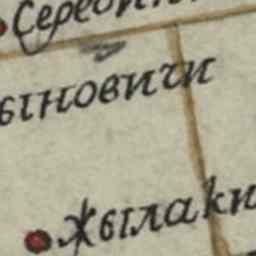 Серебр
ыновичи
Жылаки